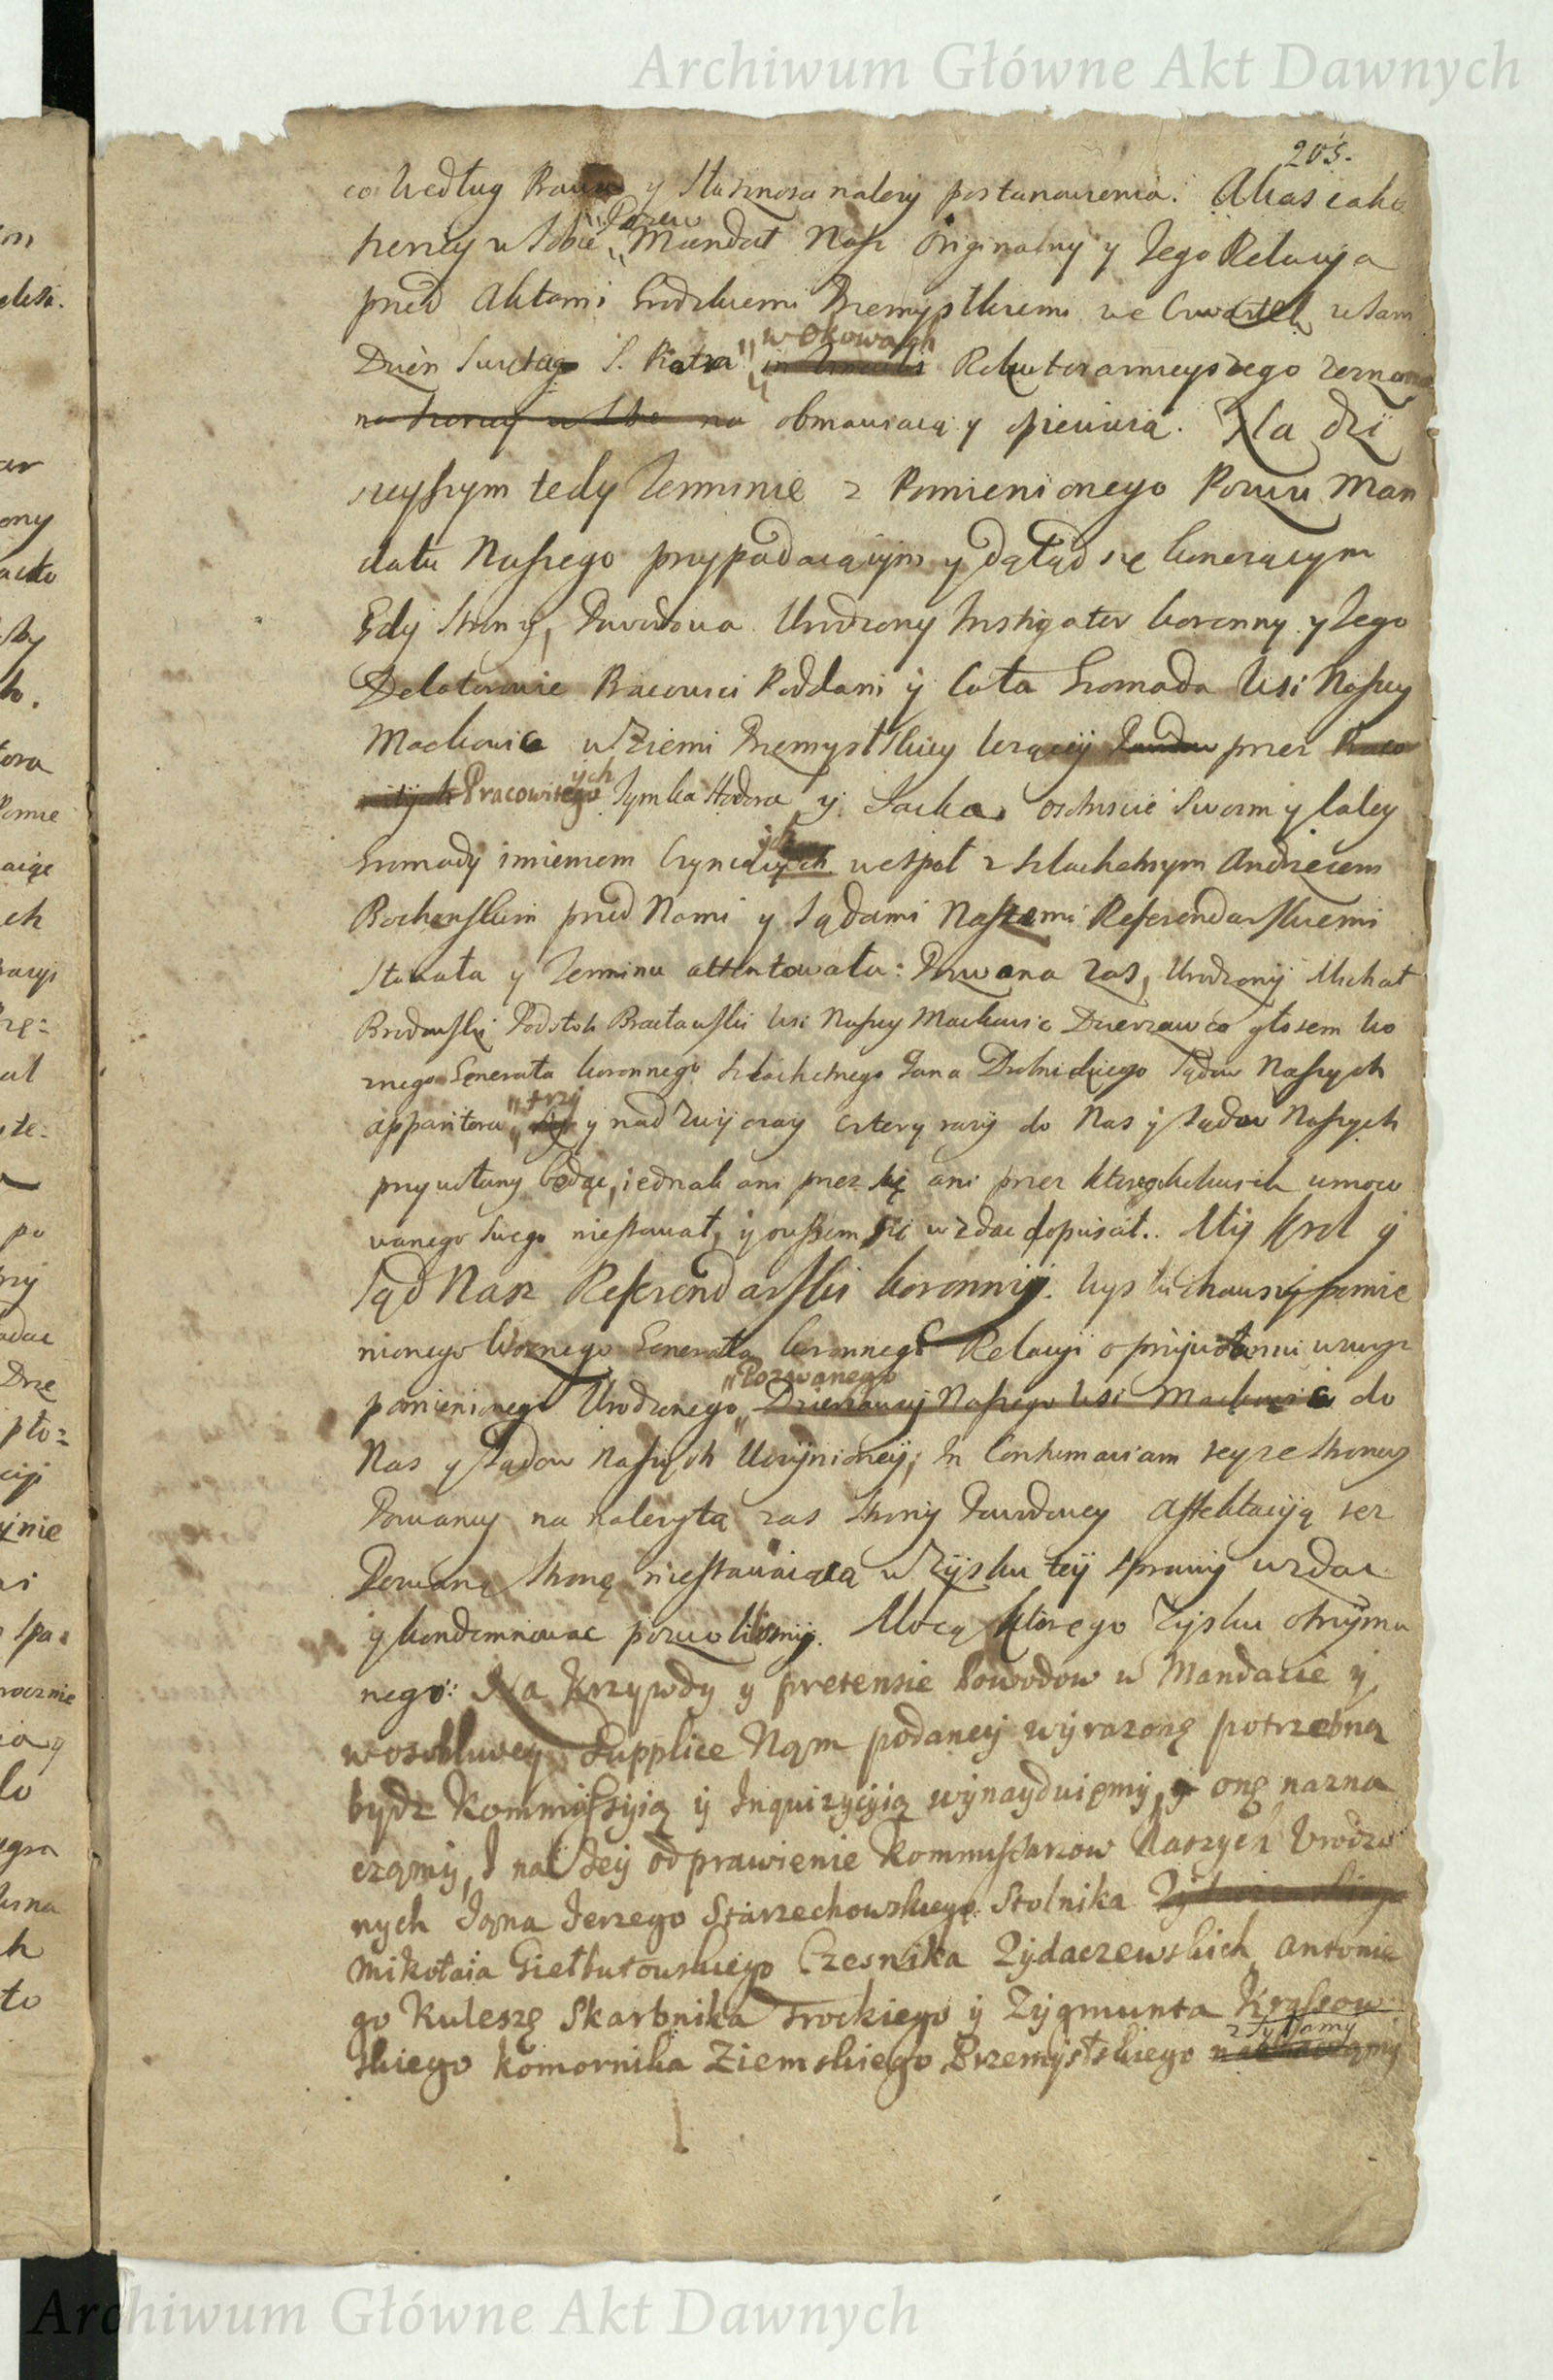 Archiwum Główne Akt Dawnych
205.
co Według Prawa y Słusznosci nalezy postanowienia. Akas iako
szerzey w Sobie Pozew Mandat Nasz Originalny y Jego Relacyja
przed Aktami Grodzkiemi Przemyslskiemi we Czwartek w Sam
Dzien Swięta S. Piotra w okowach Roku teraznieyszego zeznana
obmawiaią y opiewaią. Na dzi
sieyszym tedy Terminie z Pomienionego Pozwu Man
datu Naszego przypadaiącym y dotąd się konczącym
Gdy Strony, Powodowa Urodzony Instigator Koronny y Jego
Delatorowie Pracowici Poddani y Cała Gromada Wsi Naszey
Mackowic w Ziemi Przemyslskiey lezącey przez
Pracowitych Tymka Hodora y Jacka, oczywiscie Swoim y całey
Gromady imieniem Czyniących wespoł z Szlachetnym Andrzeiem
Bochenskim przed Nami y Sądami Naszemi Referendarskiemi
Stawała y Terminu attentowała: Pozwana zas, Urodzony Michał
Brodowski Podstoli Bracławski Wsi Naszey Mackowic Dzierzawca głosem Wo
znego Generała Koronnego Szlachetnego Jana Drolnickiego Sądow Naszych
apparitora, trzy y nad zwyczay cztery razy do Nas y Sądow Naszych
przywołany będąc, iednak ani przez się ani przez ktoregokolwiek umoco
wanego Swego niestawał, y owszem się wzdac dopuscił. My Krol y
Sąd Nasz Referendarski Koronny. Wysłuchawszy pomie
nionego Woznego Generała Koronnego Relacyi o przywołaniu wzwyz
pomienionego Urodzonego Pozwanego Dzierzawcy Naszego Wsi Mackowic do
Nas y Sądow Naszych Uczynioney, In Contumaciam teyze Strony
Pozwaney na nalezytą zas Strony Powodowey affektacyją tez
Pozwaną Stronę niestawaiącą w Zysku tey Sprawy wzdac
y kondemnowac pozwolilismy. Mocą ktorego Zysku otrzyma
nego: Na Krzywdy y pretensie Powodow w Mandacie y
w osobliwey Supplice Nąm podaney wyrazonę potrzebną
bydz Kommissyią y Inquizycyią wynayduięmy, y onę nazna
czamy, I na Jey odprawienie Kommissarzow Naszych Urodzo
nych Jąna Jerzego Starzechowskiego Stolnika
Mikołaia Giełbutowskiego Czesnika Zydaczewskich Antonie
go Kuleszę Skarbnika Trockiego y Zygmunta Krassow
skiego Komornika Ziemskiego Przemyslskiego zsyłamy
Archiwum Główne Akt Dawnych